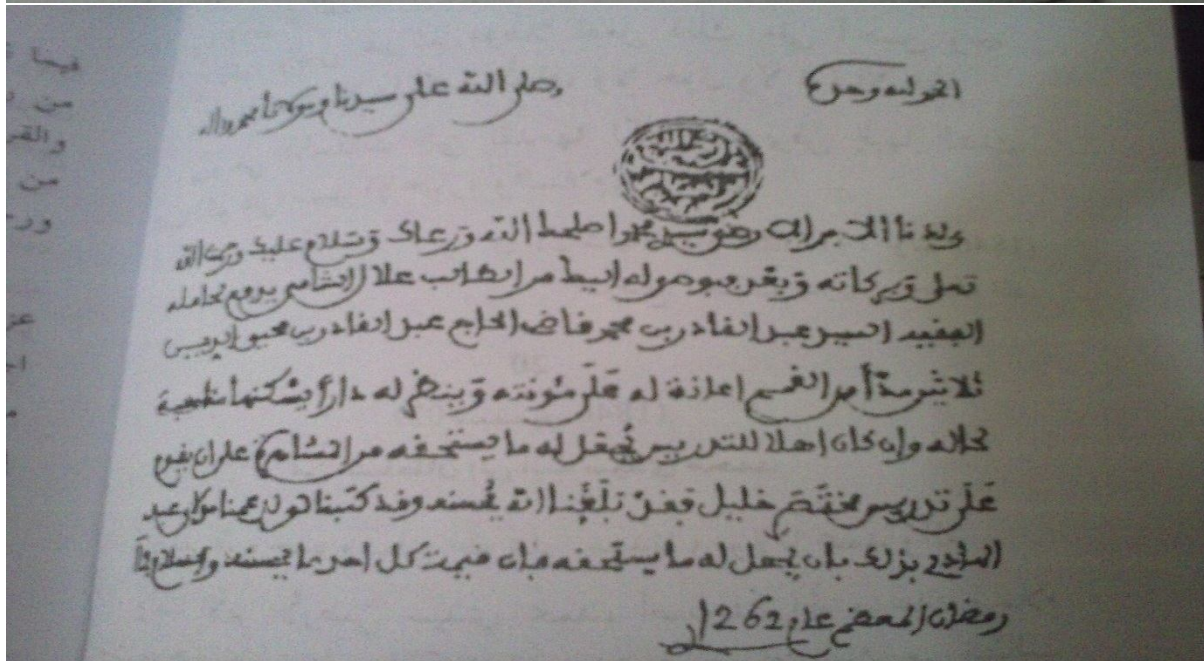 الحمد لله وحده
وصلى الله على سيدنا ومولانا محمد وآله
ولدنا الأبر الأرضى سيدي محمد أصلحك الله ورعاك وسلام عليك ورحمت الله
تعلى وبركاته وبعد فبوصوله إليك مر الطالب علال الشامي يدفع لحامله
الفقيه السيد عبد القادر بن محمد قاضي الحاج عبد القادر بن محيي الدين
ثلاثين مدا من القمح إعانة له على مئونته وينظر له دارا يسكنها
لحاله وإن كان أهلا للتدريس يجعل له ما يستحقه من على أن يقوم
على تدريس مختصر خليل فقد بلغنا أنه يحسنه وقد كتبنا لولد عمنا مولاي عبد
الهادي بذلك بأن يجعل له ما يستحقه فإن قيمت كل امرئ ما يحسنه والسلام في
رمضان المعظم عام 1262
فيما
من
والقر
من